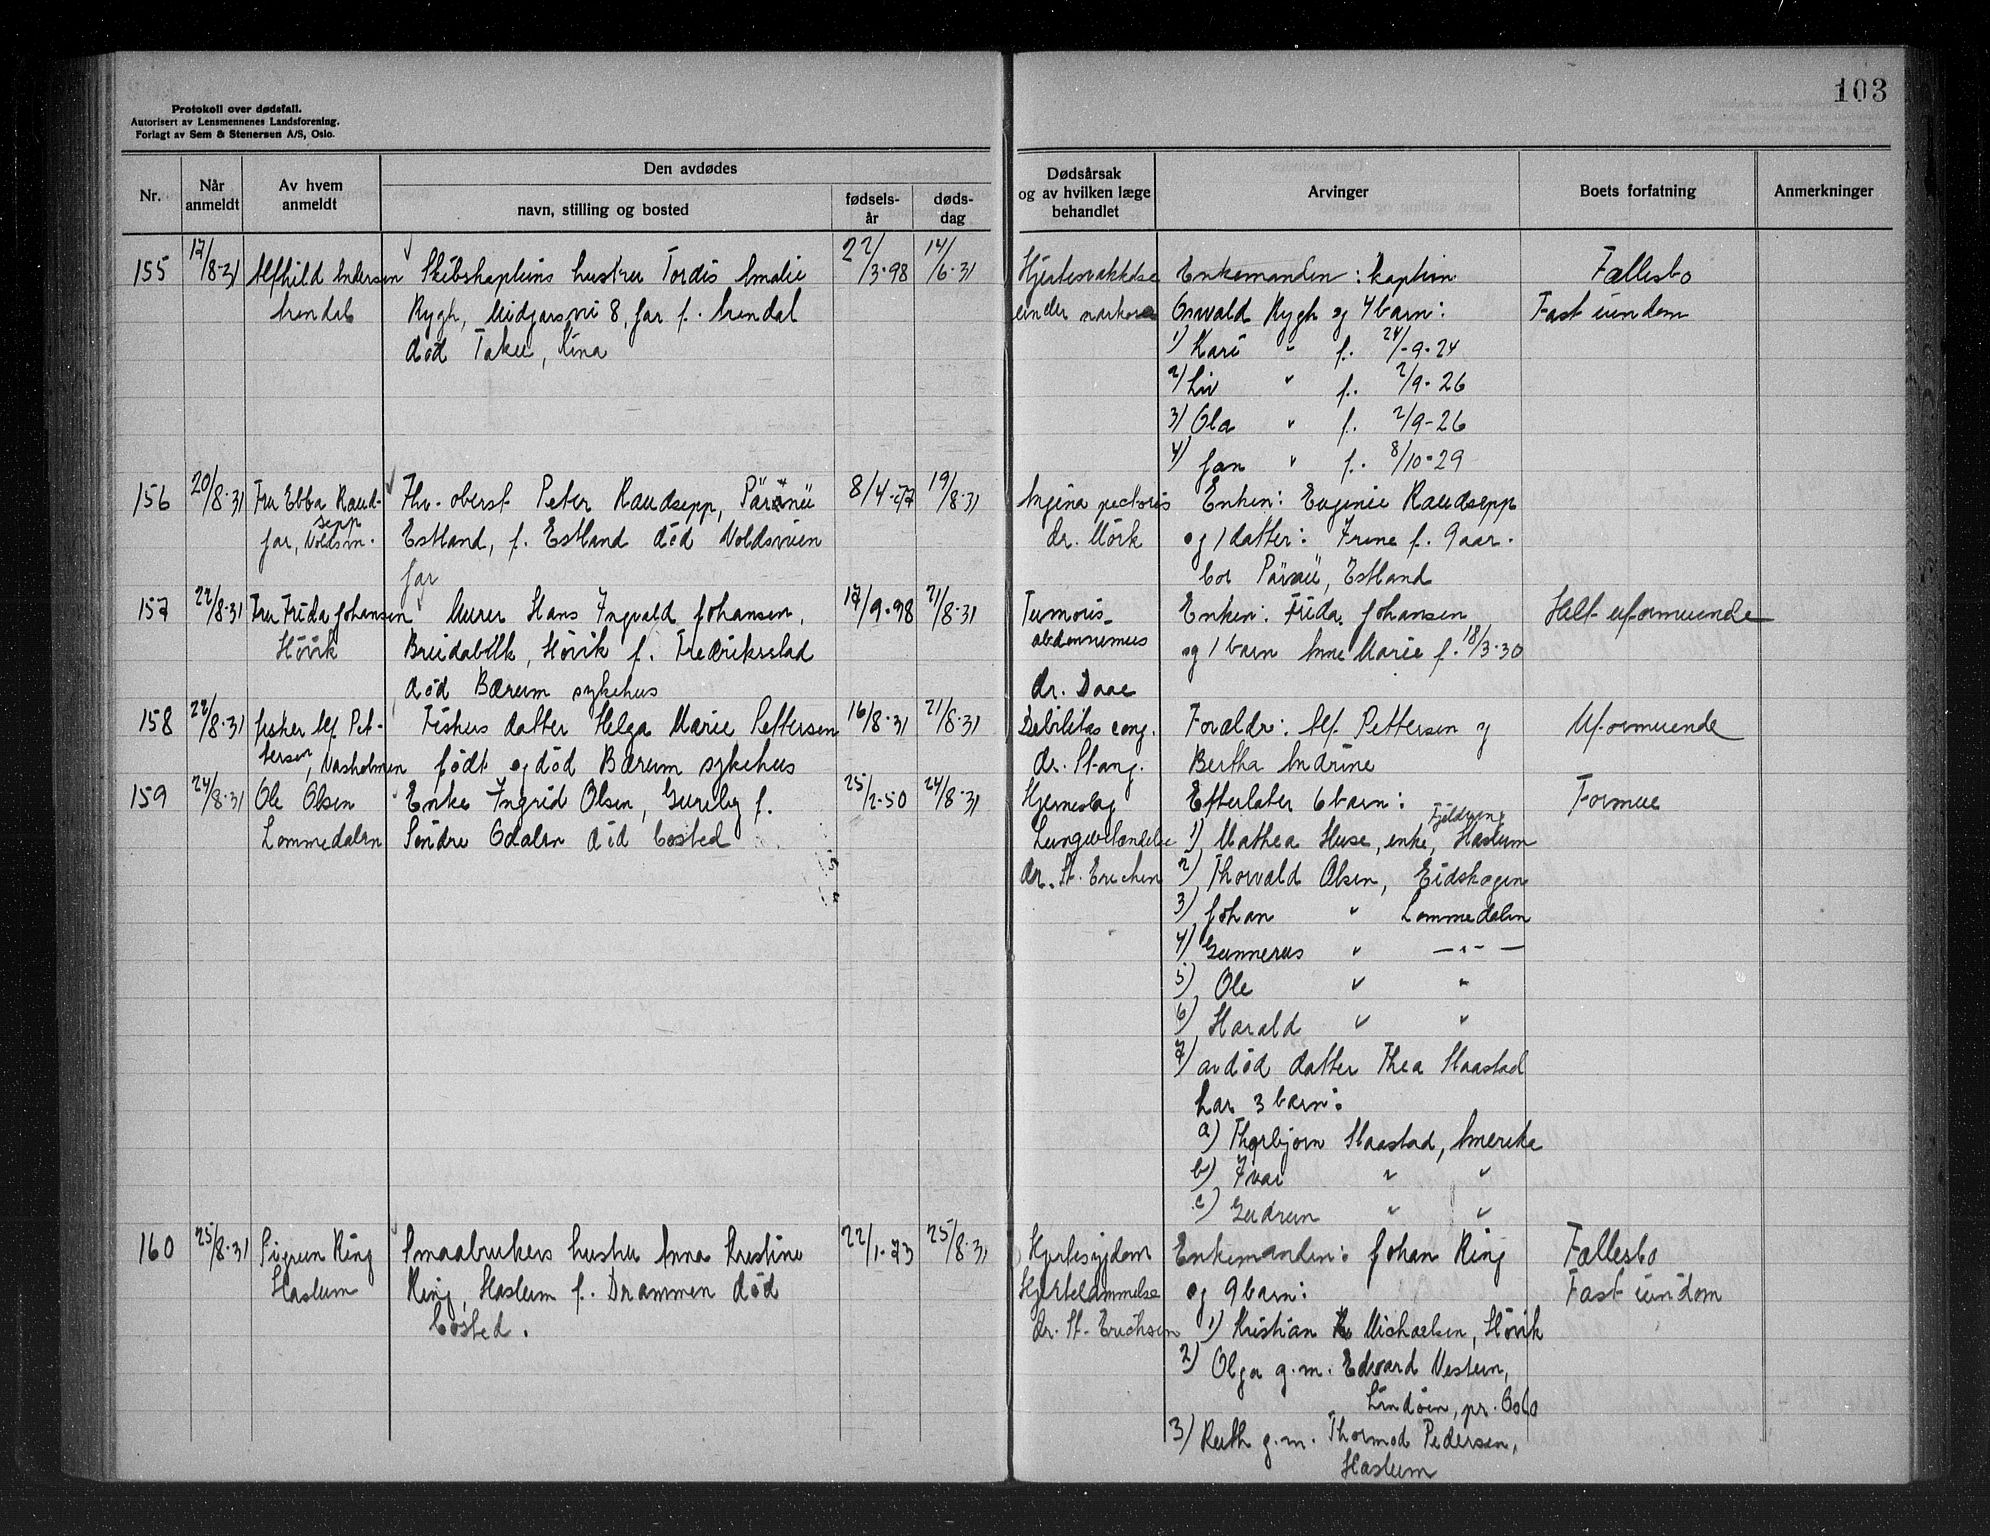 103
Protokoll over dødsfall.
Autorisert av Lensmennenes Landsforening.
Forlagt av Sem & Stenersen A/S, Oslo.
Nr.
Når anmeldt
Av hvem anmeldt
Den avdødes
navn, stilling og bosted
fødsels-år
døds-dag
Dødsårsak og av hvilken læge behandlet
Arvinger
Boets forfatning
Anmerkninger
155 17/8-31 Alfhild Andersen Skibskapteins hustru Tordis Amalie 22/3-98 14/6-31 Hjertesvækkelse Enkemanden: kaptein Fællesbo
Arendal Rygh, 8, Jar f. Arendal under narkose Oswald Rygh og 4 barn: Fast eiendom
død Taku, Kina 1) Kari " f. 24/-9-24
2) Liv " f. 2/9-26
3) Ola " f. 2/9-26
4) Jan " f. 8/10-29
156 20/8-31 Fru Ebba Raud- Fhv. oberst Peter Raudsepp, Pärnu 8/4-77 19/8-31 Angina pectoris Enken: Eugenie Raudsepp
sepp
Jar, Voldsvn. Estland, f. Estland død Voldsveien dr. Mörk og 1 datter: Irene f. 9 aar.
Jar bor Pärnu, Estland
157 22/8-31 Fru Frida Johansen Murer Hans Ingvald Johansen, 17/9-98 21/8-31 Tumoris Enken: Frida Johansen Helt uformuende
Høvik Breidablik, Høvik f. Fredriksstad abdonnemus og 1 barn Anne Marie f. 18/3-30
død Bærum sykehus dr. Daae
158 22/8-31 fisker Alf Pet- Fiskers datter Helga Marie Pettersen 16/8-31 21/8-31 Debilitas cong. Forældre: Alf Pettersen og Uformuende
tersen, født og død Bærum sykehus dr. Stang. Bertha Andrine
159 24/8-31 Ole Olsen Enke Ingrid Olsen, Gureby f. 25/2-50 24/8-31 Hjerneslag Efterlater 6 barn: Formue
Lommedalen Søndre Odalen død bosted Lungebetændelse 1) Mathea Huse, enke, Haslum
dr. St. Erichsen 2) Thorvald Olsen, Eidskogen
3) Johan " Lommedalen
4) Gunnerus " — " —
5) Ole " "
6) Harald " "
7) avdød datter Thea Slaastad
har 3 barn:
a) Thorbjørn Slaastad, Amerika
b) Ivar " "
c) Gudrun " "
160 25/8-31 Sigrun Ring Smaabrukers hustru Anna Kristine 22/1-73 25/8-31 Hjertesygdom Enkemanden: Johan Ring Fællesbo
Haslum Ring, Haslum f. Drammen død Hjertelammelse og 9 barn: Fast eiendom
bosted. dr. St. Erichsen 1) Kristian Michaelsen, Høvik
2) Olga g.m. Edvard Vestern,
Lindøen, pr. Oslo
3) Ruth g.m. Thormod Pedersen,
Haslum